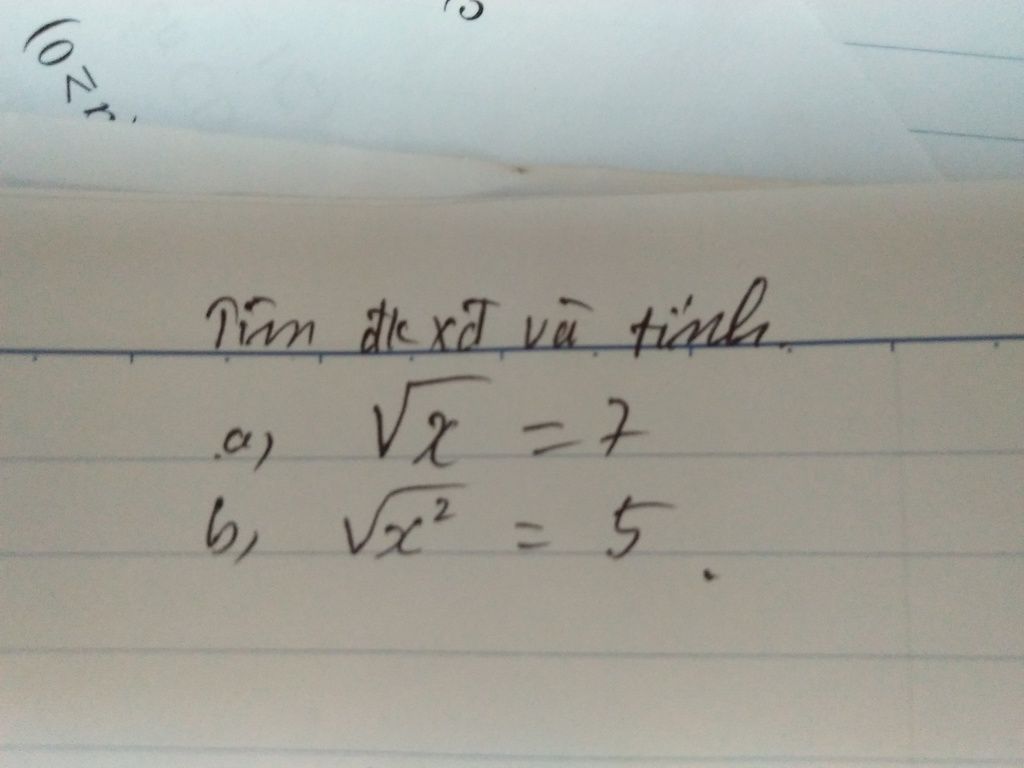 Tìm đk xđ và tính.
a, √x = 7
b, √x² = 5.